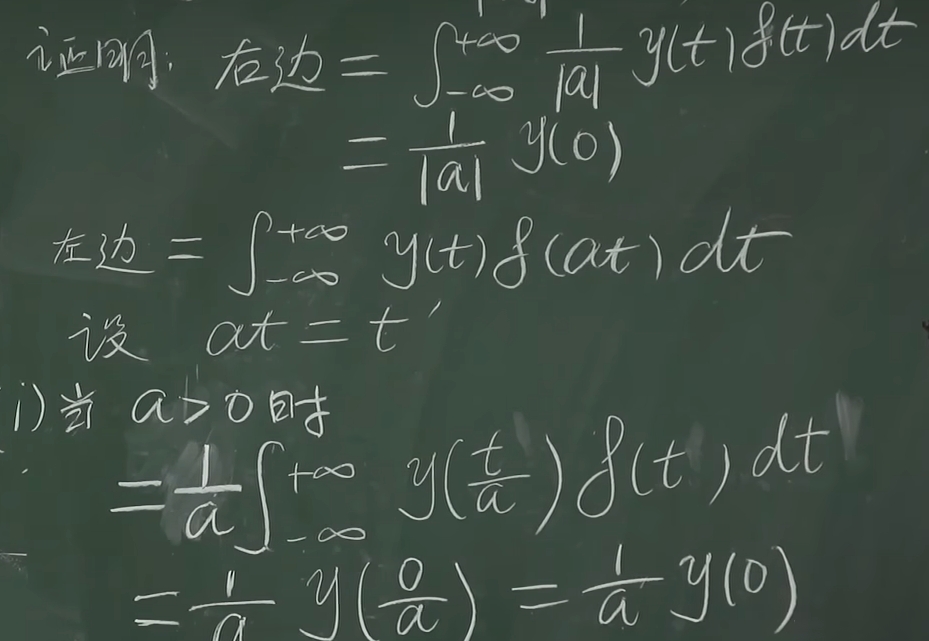 证明: 右边 = ∫_{-∞}^{+∞} 1/|a| y(t) δ(t) dt
= 1/|a| y(0)
左边 = ∫_{-∞}^{+∞} y(t) δ(at) dt
设 at = t′
i) 当 a>0 时
= 1/a ∫_{-∞}^{+∞} y(t/a) δ(t) dt
= 1/a y(0/a) = 1/a y(0)